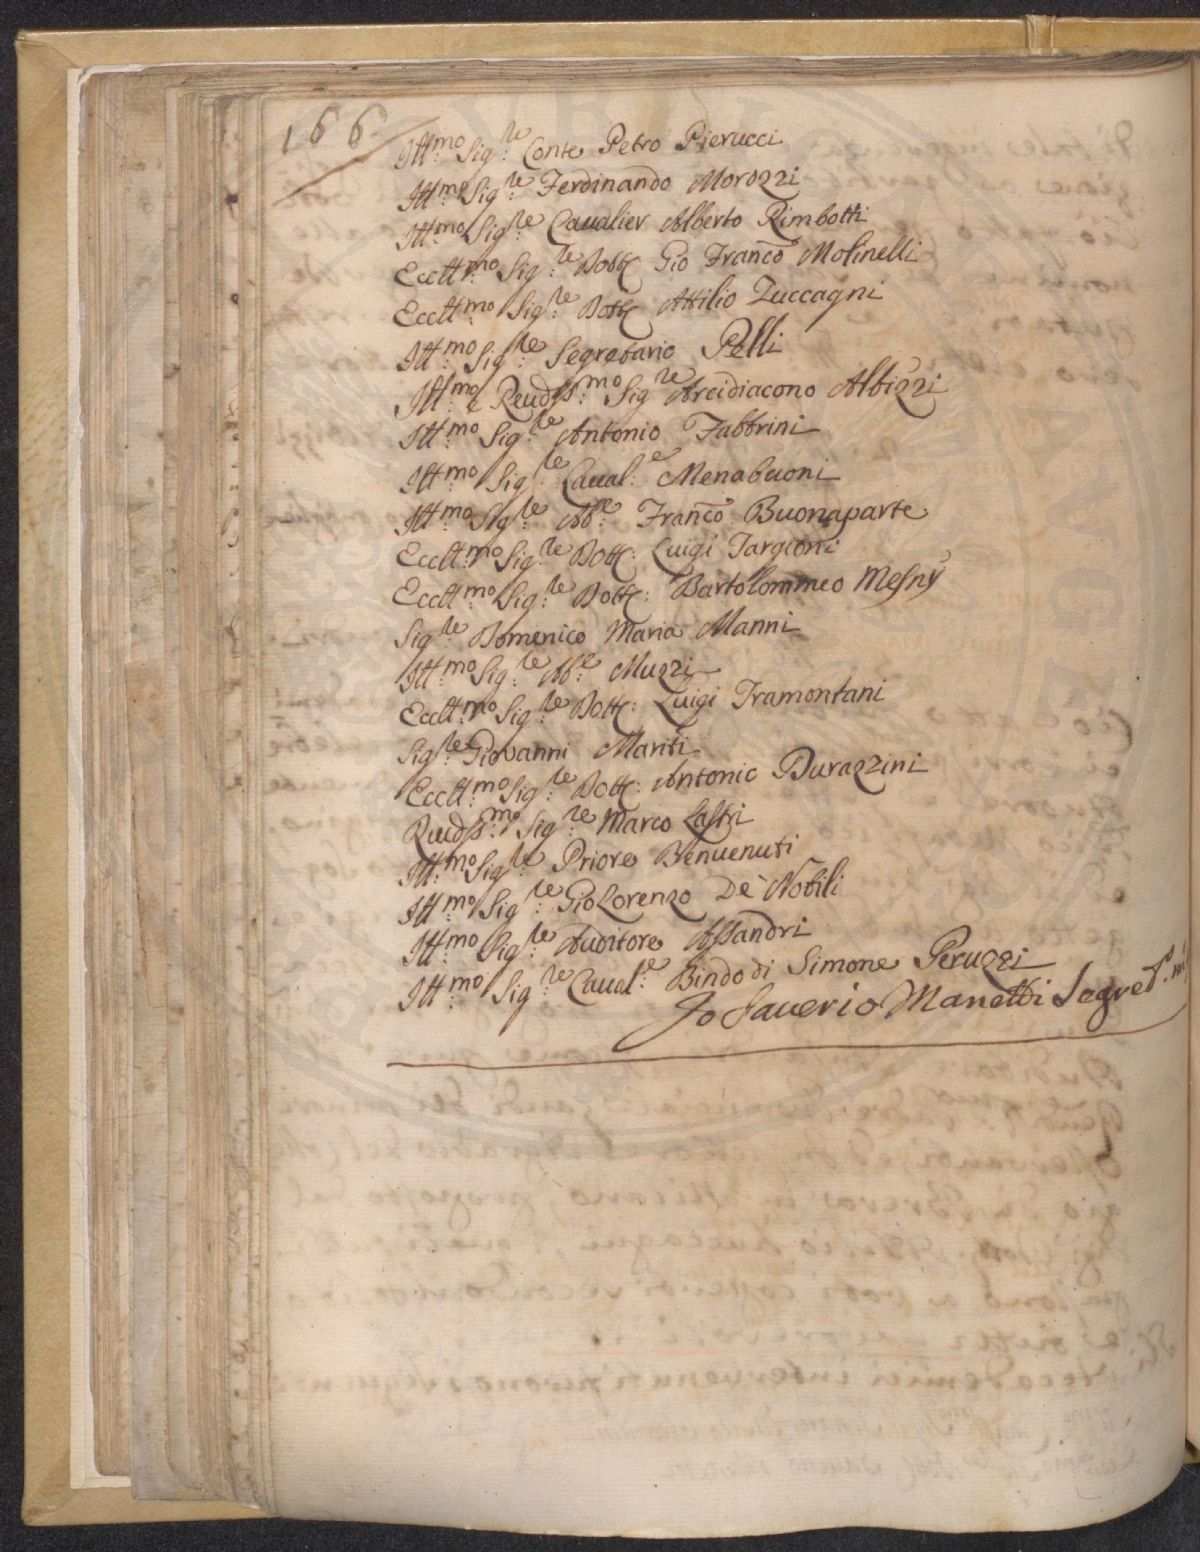 166
Ill:mo Sig:re Conte Petro Pierucci
Ill:mo Sig:re Ferdinando Morozzi
Ill:mo Sig:re Caualier Alberto Rimbotti
Eccll:mo Sig:re Dott: Gio Franco Molinelli
Eccll:mo Sig:re Dott: Attilio Zuccagni
Ill:mo Sig:re Segretario Pelli
Ill:mo e Reudss:mo Sig:re Arcidiacono Albizzi
Ill:mo Sig:re Antonio Fabbrini
Ill:mo Sig:re Caual:e Menabuoni
Ill:mo Sig:re Ab:e Franco Buonaparte
Eccll:mo Sig:re Dott: Luigi Targioni
Eccll:mo Sig:re Dott: Bartolommeo Mesny
Sig:re Domenico Maria Manni
Ill:mo Sig:re Ab:e Muzzi
Eccll:mo Sig:re Dott: Luigi Tramontani
Sig:re Giovanni Mariti
Eccll:mo Sig:re Dott: Antonio Durazzini
Reudss:mo Sig:re Marco Lastri
Ill:mo Sig:re Priore Benuenuti
Ill:mo Sig:re Gio Lorenzo De' Nobili
Ill:mo Sig:re Auditore Assandri
Ill:mo Sig:re Caual:e Bindo di Simone Peruzzi
Io Sauerio Manetti Segret:o